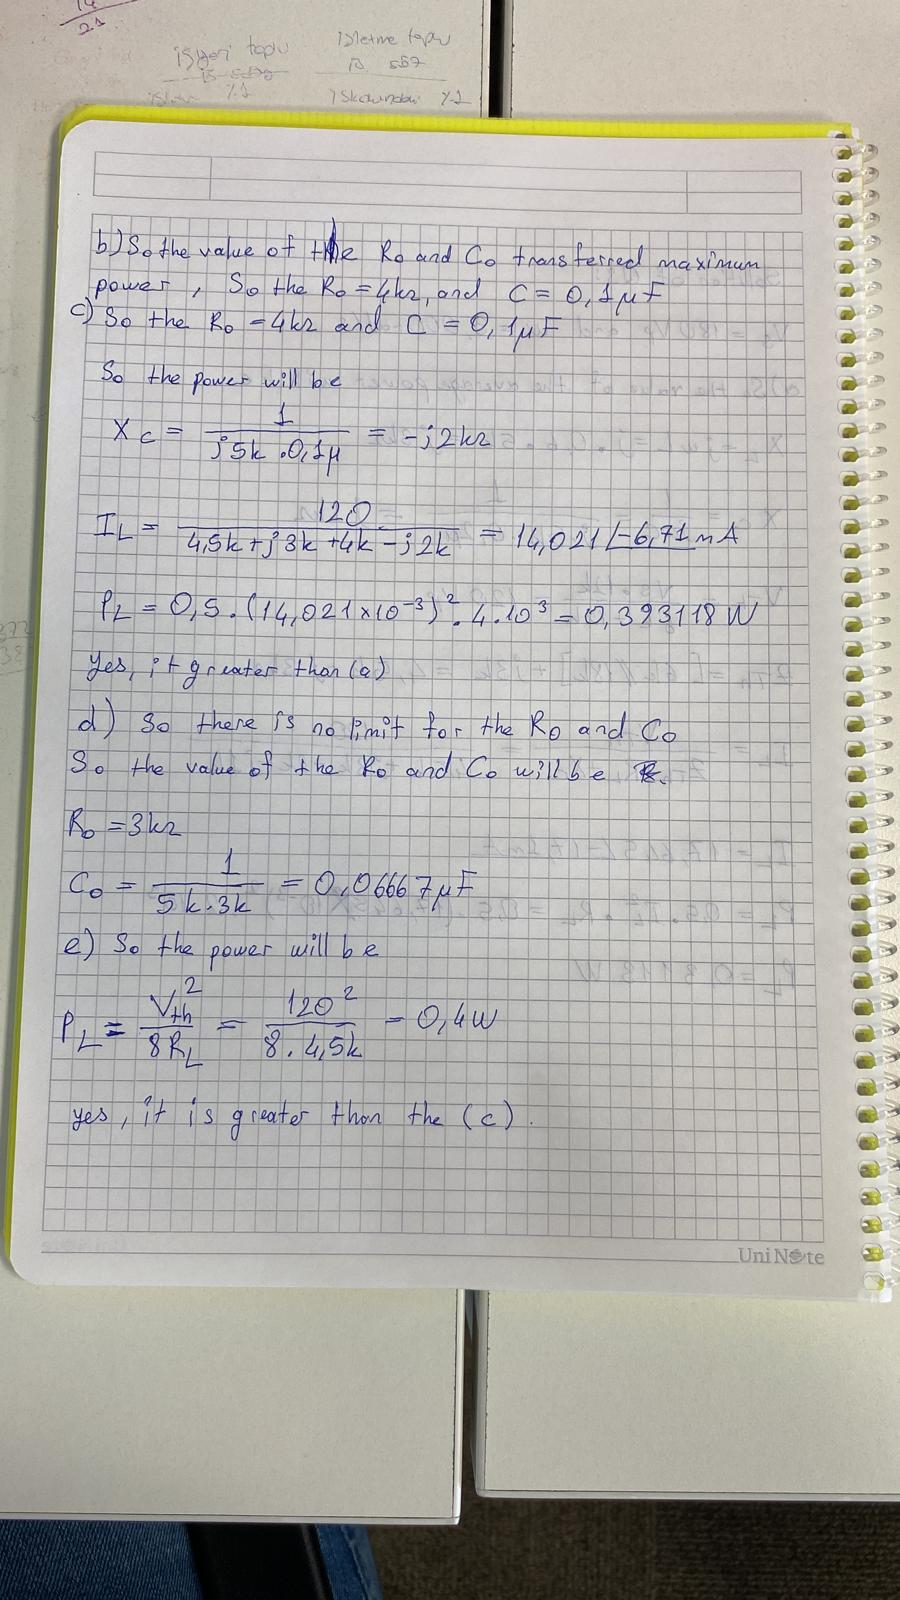 21
işyeri topu
işletme topu
587
%1
iskontodu %1
b) So the value of the Ro and Co transferred maximum
power, So the Ro = 4kΩ and C = 0,1µF
c) So the Ro = 4kΩ and C = 0,1µF
So the power will be
Xc = 1 / j5k.0,1µ = -j2kΩ
IL = 120 / 4,5k+j3k+4k-j2k = 14,021∠-6,71 mA
PL = 0,5.(14,021x10⁻³)².4.10³ = 0,393118 W
Yes, it greater than (a)
d) So there is no limit for the Ro and Co
So the value of the Ro and Co will be
Ro = 3kΩ
Co = 1 / 5k.3k = 0,06667µF
e) So the power will be
PL = Vth² / 8RL = 120² / 8.4,5k = 0,4w
yes, it is greater than the (c).
UniNote